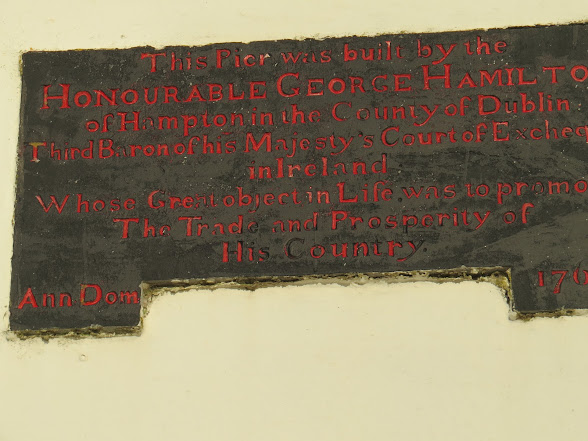 This Pier was built by the
HONOURABLE GEORGE HAMILTO
of Hampton in the County of Dublin
Third Baron of his Majesty's Court of Excheq
in Ireland
Whose Great object in Life was to promo
The Trade and Prosperity of
His Country.
Ann Dom